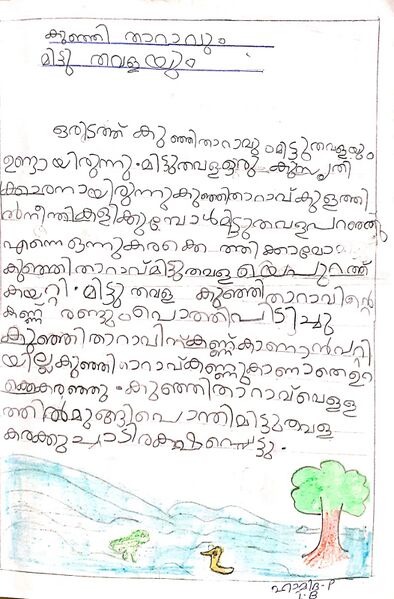 കുഞ്ഞി താറാവും
മിട്ടു തവളയും
ഒരിടത്ത് കുഞ്ഞിതാറാവുംമിട്ടുതവളയും
ഉണ്ടായിരുന്നു.മിട്ടുതവളഒരു കുസൃതി
ക്കാരനായിരുന്നുകുഞ്ഞിതാറാവ്കുളത്തി
ൽനീന്തികളിക്കുമ്പോൾമിട്ടുതവളപറഞ്ഞു
എന്നെ ഒന്നുകരക്കെ ത്തിക്കാമോ
കുഞ്ഞിതാറാവ്മിട്ടുതവള യെപുറത്ത്
കയറ്റി.മിട്ടു തവള കുഞ്ഞിതാറാവിന്റെ
കണ്ണ് രണ്ടുംപൊത്തിപിടിച്ചു
കുഞ്ഞിതാറാവിന്കണ്ണ്കാണാൻപറ്റി
യില്ലകുഞ്ഞിതാറാവ്കണ്ണുകാണാതെഉറ
ക്കെകരഞ്ഞു.കുഞ്ഞിതാറാവ്വെള്ള
ത്തിൽമുങ്ങിപൊന്തിമിട്ടുതവള
കരക്കുചാടിരക്ഷപ്പെട്ടു.
ഹാമിദ-P
1-B